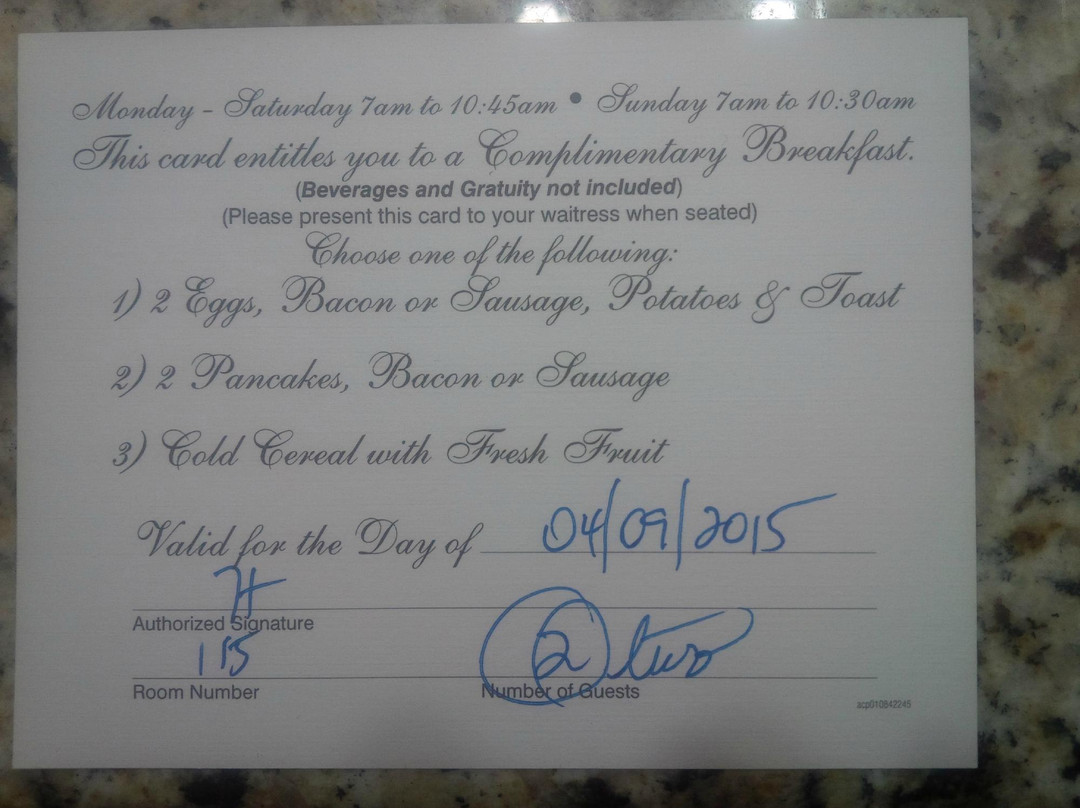 Monday - Saturday 7am to 10:45am • Sunday 7am to 10:30am
This card entitles you to a Complimentary Breakfast.
(Beverages and Gratuity not included)
(Please present this card to your waitress when seated)
Choose one of the following:
1) 2 Eggs, Bacon or Sausage, Potatoes & Toast
2) 2 Pancakes, Bacon or Sausage
3) Cold Cereal with Fresh Fruit
Valid for the Day of 04/09/2015
Authorized Signature
115 2 two
Room Number Number of Guests
acp010842245